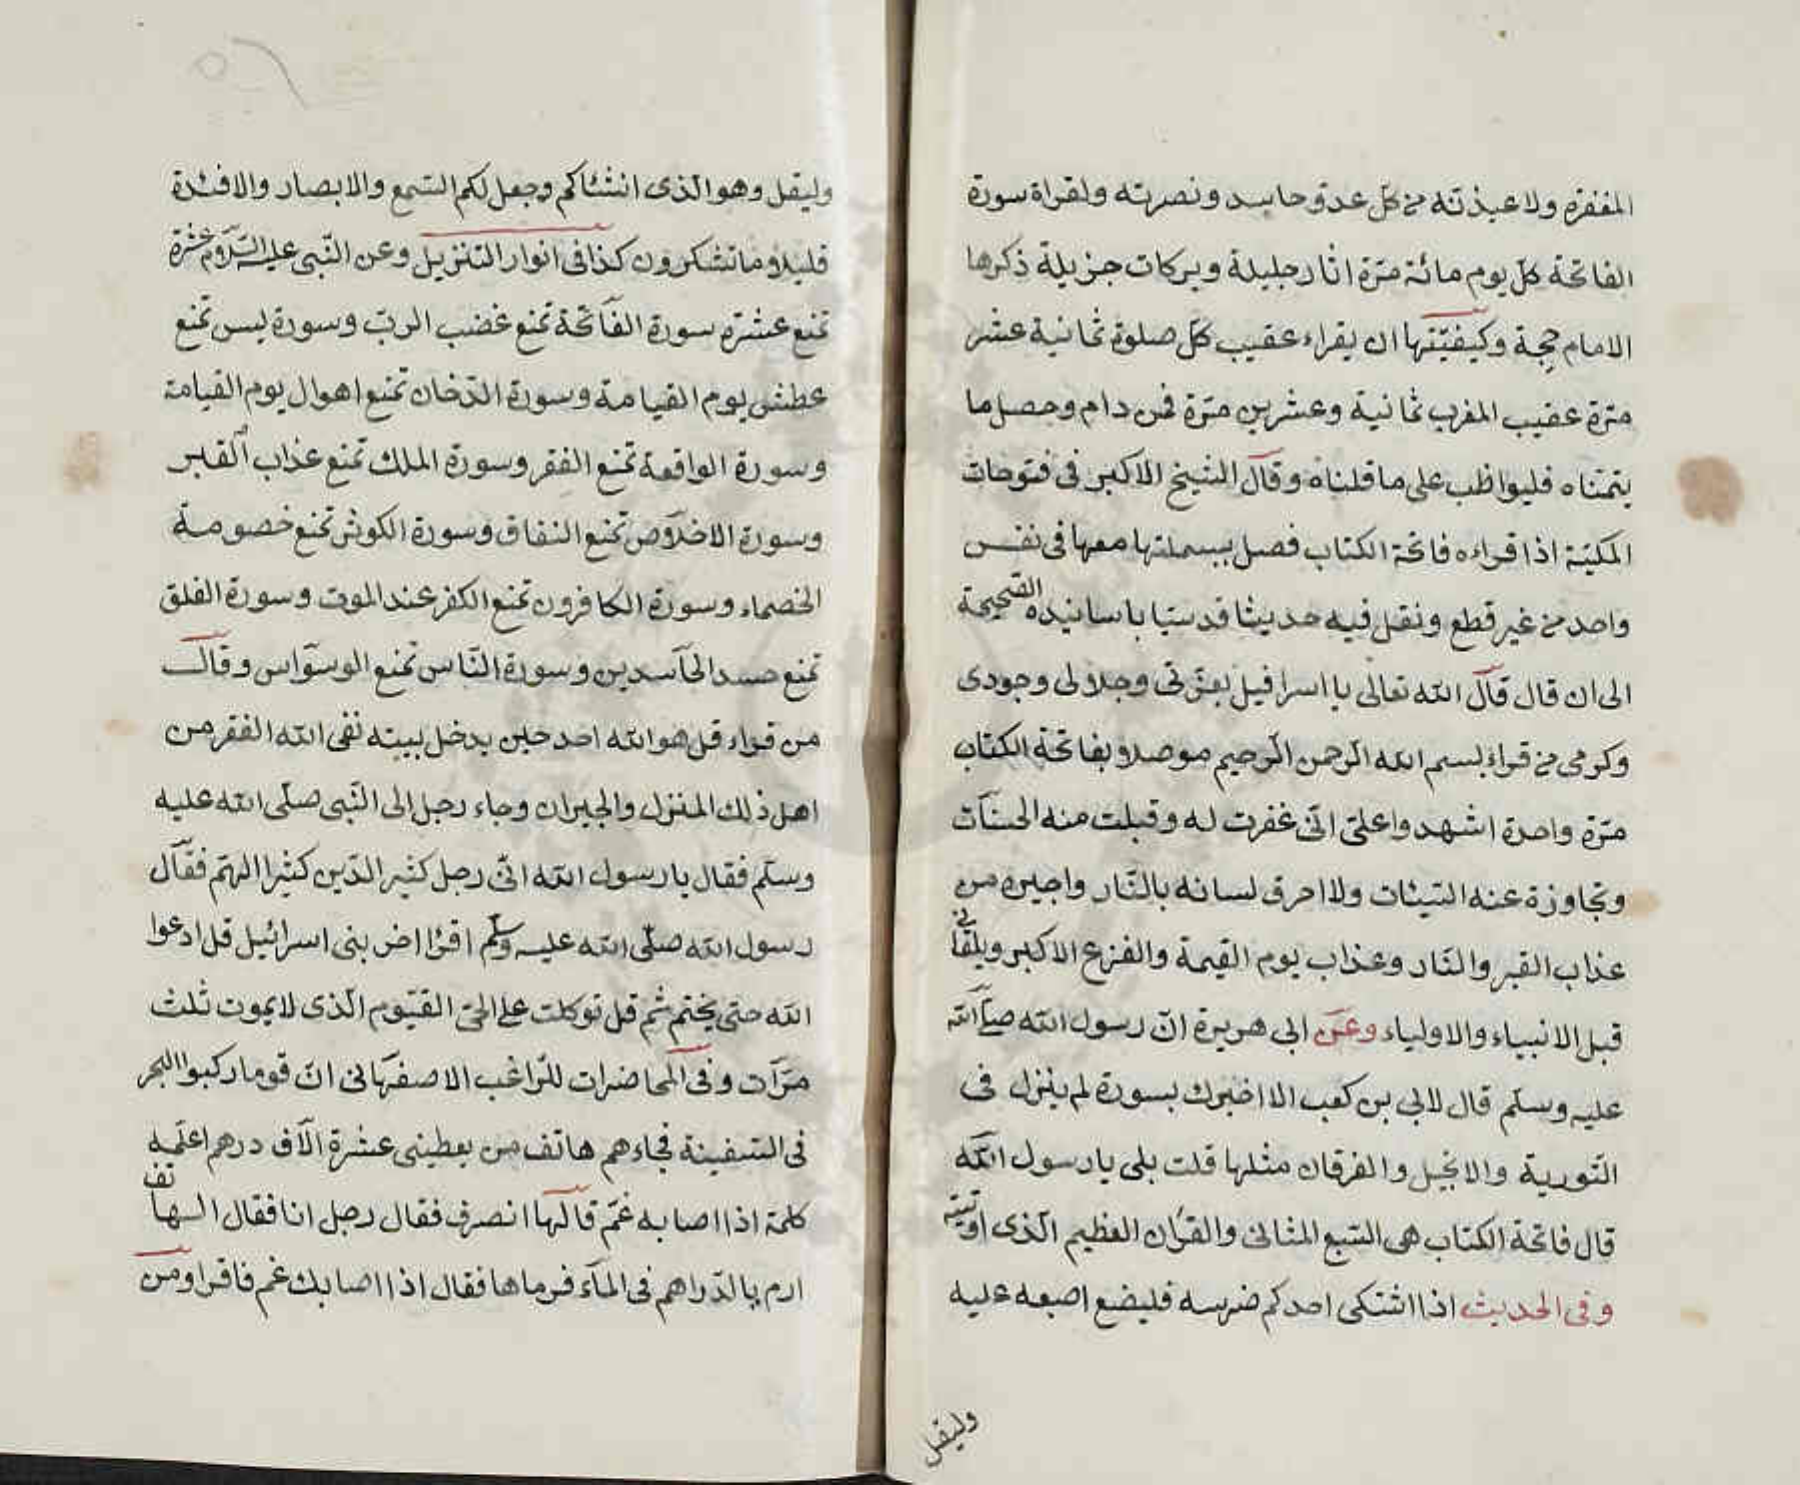 المغفرة ولاعيذته من كل عدو وحاسد ونصرته ولقراة سورة
الفاتحة كل يوم مائة مرّة اثار جليلة وبركات جزيلة ذكرها
الامام حجة وكيفيّتها ان يقراء عقيب كل صلوة ثمانية عشر
مرّة عقيب المغرب ثمانية وعشرين مرّة فمن دام وحصل ما
يتمناه فليواظب على ما قلناه وقال الشيخ الاكبر فى فتوحات
المكيّة اذا قراءه فاتحة الكتاب فصل ببسملتها معها فى نفس
واحد من غير قطع ونقل فيه حديثا قدسيّا باسانيده الصّحيحة
الى ان قال قال الله تعالى يا اسرافيل بعزّتى وجلالى وجودى
وكرمى من قراء بسم الله الرّحمن الرّحيم موصلا بفاتحة الكتاب
مرّة واحدة اشهدوا على انّى غفرت له وقبلت منه الحسنات
وتجاوزة عنه السّيئات ولا احرق لسانه بالنّار واجيره من
عذاب القبر والنّار وعذاب يوم القيمة والفزع الاكبر ويلقانى
قبل الانبياء والاولياء وعن ابى هريرة انّ رسول الله صلّى الله
عليه وسلّم قال لابى بن كعب الا اخبرك بسورة لم ينزل فى
التّورية والانجيل والفرقان مثلها قلت بلى يا رسول الله
قال فاتحة الكتاب هى السّبع المثانى والقرآن العظيم الّذى اوتيته
وفى الحديث اذا اشتكى احدكم ضرسه فليضع اصبعه عليه
وليقل
وليقل وهو الّذى انشئاكم وجعل لكم السّمع والابصار والافئدة
قليلا ما تشكرون كذا فى انوار التنزيل وعن النّبى عليه السّلام عشرة
تمنع عشرة سورة الفاتحة تمنع غضب الربّ وسورة ليس تمنع
عطش يوم القيامة وسورة الدّخان تمنع اهوال يوم القيامة
وسورة الواقعة تمنع الفقر وسورة الملك تمنع عذاب القبر
وسورة الاخلاص تمنع النفاق وسورة الكوثر تمنع خصومة
الخصماء وسورة الكافرون تمنع الكفر عند الموت وسورة الفلق
تمنع حسد الحاسدين وسورة النّاس تمنع الوسواس وقال
من قراء قل هو الله احد حين يدخل بيته نفى الله الفقر من
اهل ذلك المنزل والجيران وجاء رجل الى النّبى صلّى الله عليه
وسلّم فقال يا رسول الله انّى رجل كثير الدّين كثير الهمّ فقال
رسول الله صلّى الله عليه وسلّم اقرٔا اخر بنى اسرائيل قل ادعوا
الله حتى يختم ثم قل توكلت على الحىّ القيّوم الّذى لا يموت ثلث
مرّات وفى المحاضرات للرّاغب الاصفهانى انّ قوما ركبوا البحر
فى السّفينة فجاءهم هاتف من يعطينى عشرة الآف درهم اعلّمه
كلمة اذا اصابه غمّ قالها انصرف فقال رجل انا فقال الهاتف
ارم بالدّراهم فى الماء فرماها فقال اذا اصابك غم فاقرا ومن